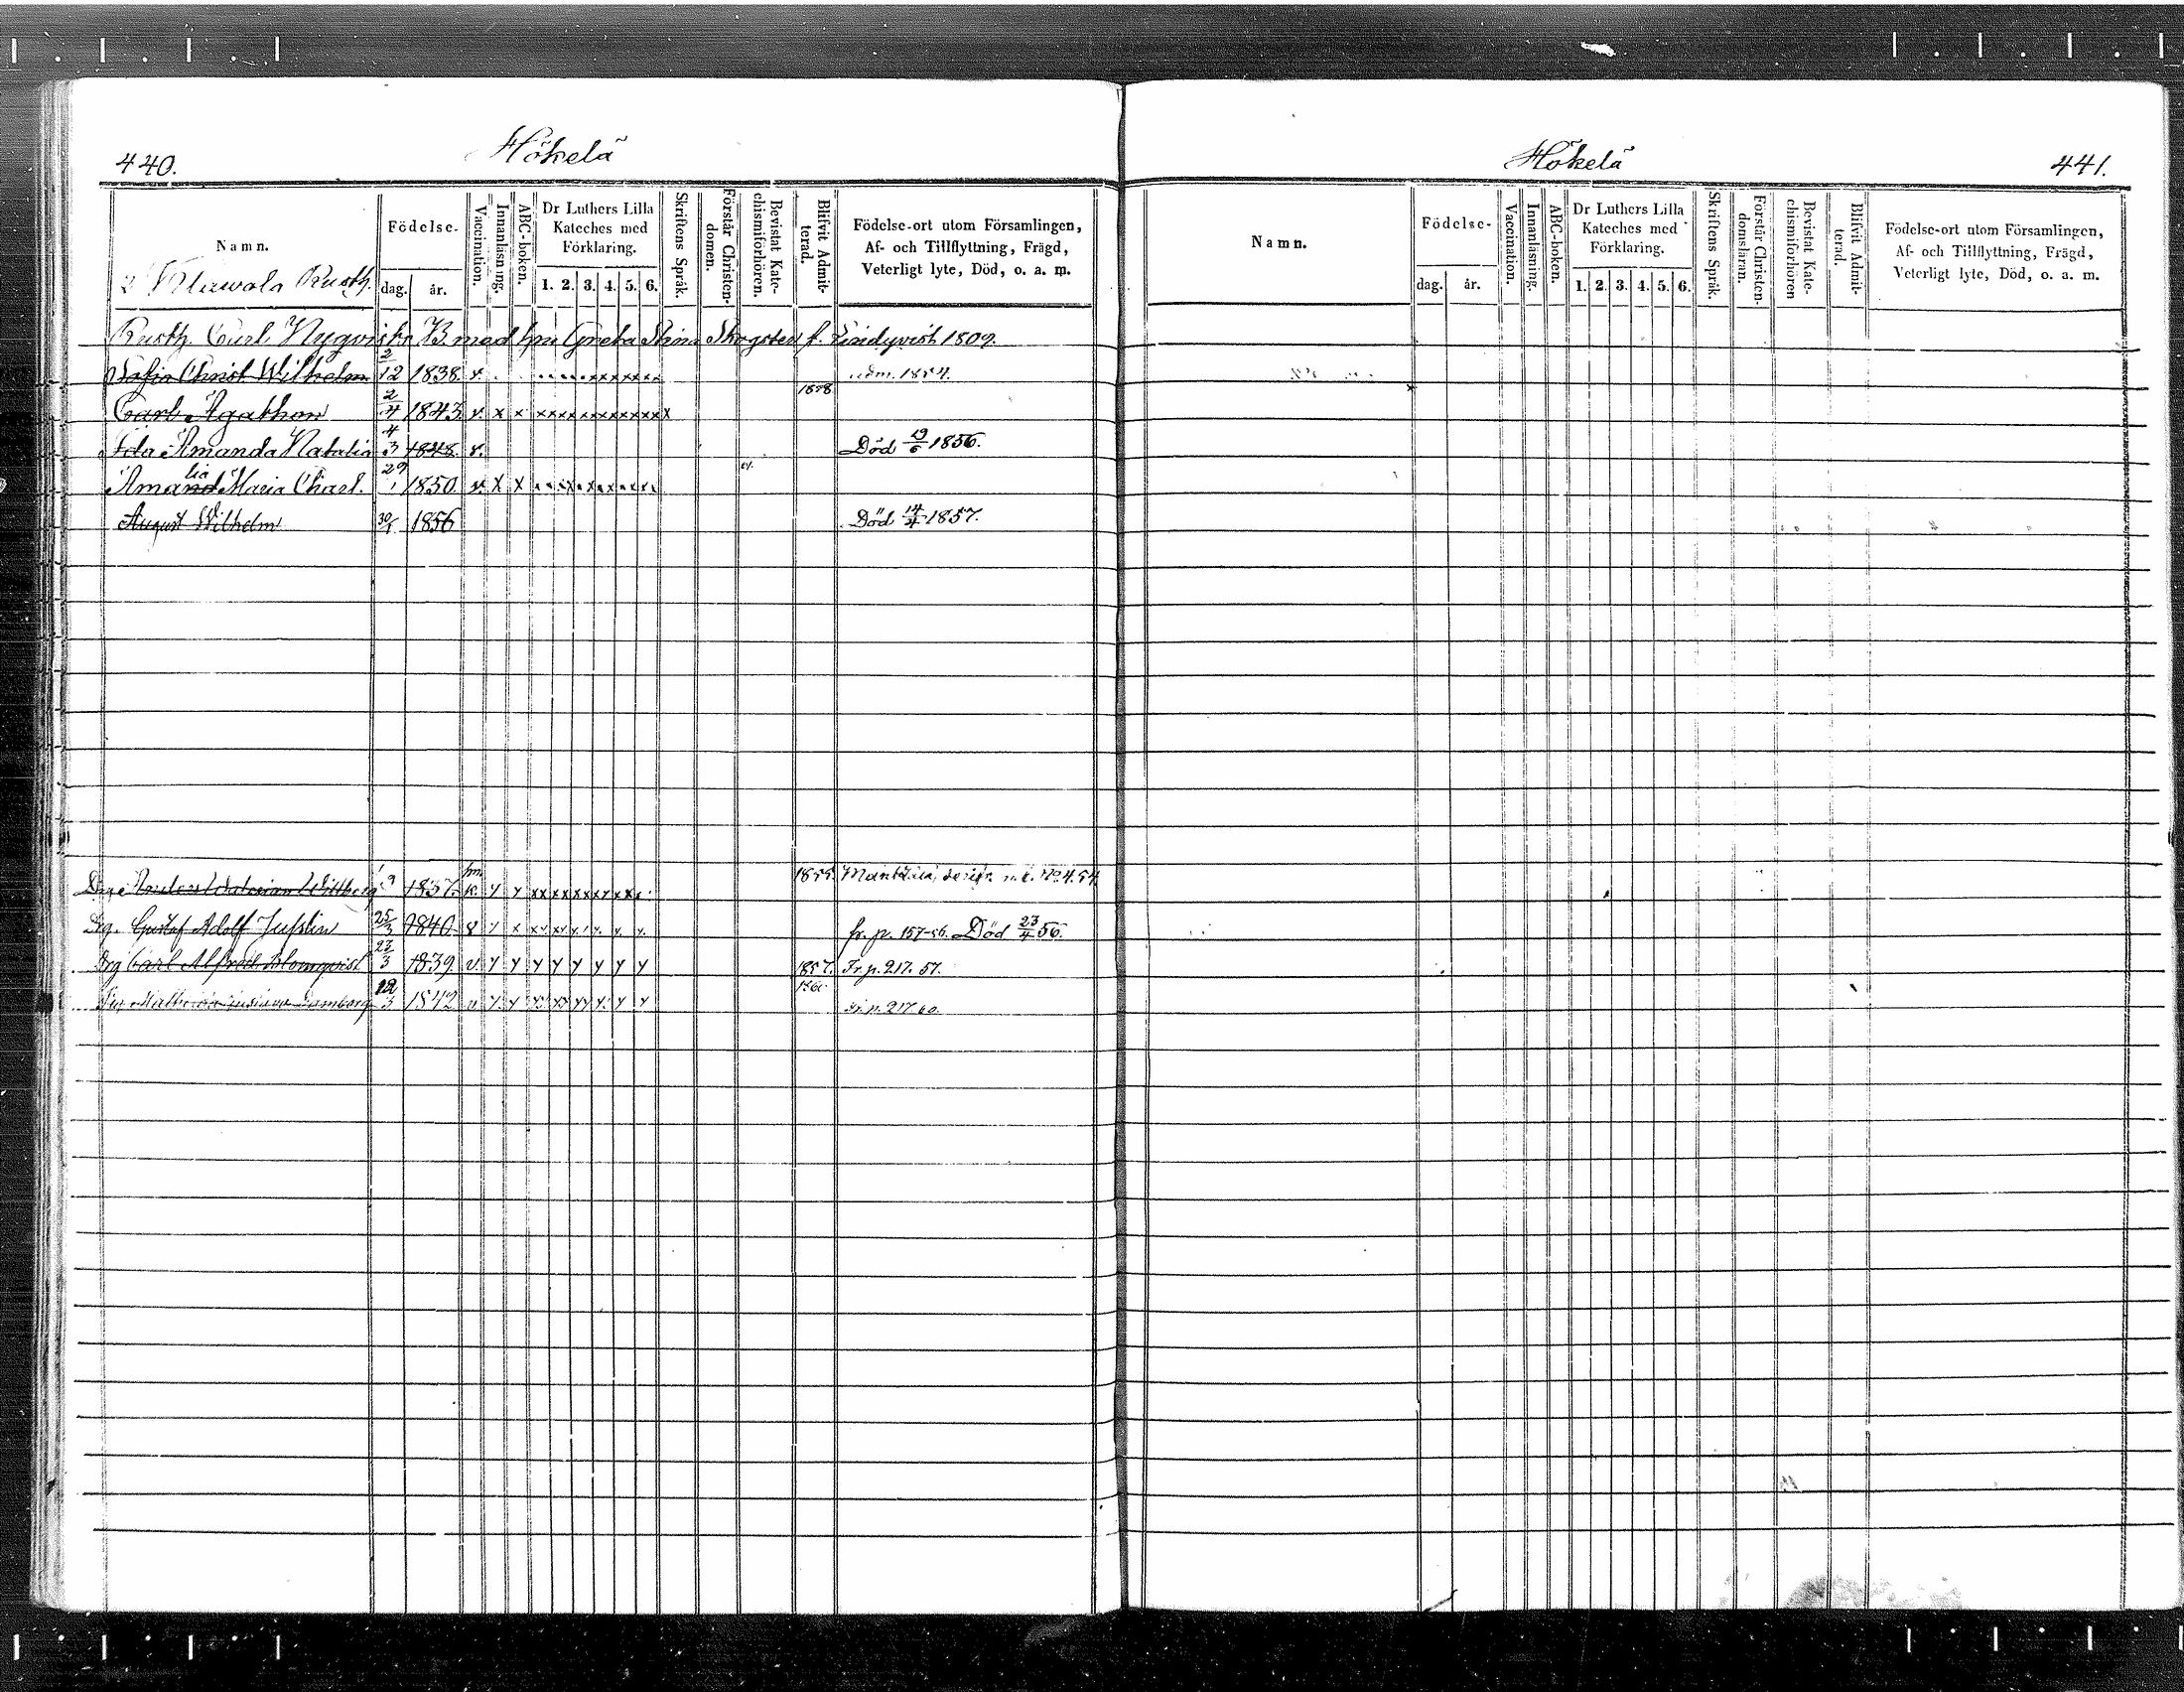 440.
Hökelä
Namn.
Födelse-
dag. år.
Vaccination.
Innanläsning.
ABC-boken.
Dr Luthers Lilla
Kateches med
Förklaring.
1. 2. 3. 4. 5. 6.
Skriftens Språk.
Förstår Christen-
domen.
Bevistat Kate-
chismiförhören.
Blifvit Admit-
terad.
Födelse-ort utom Församlingen,
Af- och Tillflyttning, Frägd,
Veterligt lyte, Död, o. a. m.
2 Rusth.
Rusth. Carl Nyqvists B. med hu Greta Stina Skogster f. Lindqvist 1809.
Sofia Christ. Wilhelm 2/12 1838. v. adm. 1854.
Carl Agathon 2/4 1843 v. x x xxxxxxxxxxxx x 1858
Ida Amanda Natalia 4/3 1848. v. Död 19/6 1856.
Amanda lia Maria Charl. 29/1 1850. v. x x
August Wilhelm 30/1 1856 Död 14/4 1857.
Wittberg 1837. 1855.
Drg. Gustaf Adolf Juslin 25/3 1840 fr. p. 157-56. Död 23/4 56.
Drg Carl Alfred Blomqvist 27/3 1839 v. y y y y y y y y 1857. Fr. p. 217. 57.
12/3 1842 v 1860 Fr. p. 217 60.
Hökelä
441.
Namn.
Födelse-
dag. år.
Vaccination.
Innanläsning.
ABC-boken.
Dr Luthers Lilla
Kateches med
Förklaring.
1. 2. 3. 4. 5. 6.
Skriftens Språk.
Förstår Christen-
domsläran.
Bevistat Kate-
chismiförhören
Blifvit Admit-
terad.
Födelse-ort utom Församlingen,
Af- och Tillflyttning, Frägd,
Veterligt lyte, Död, o. a. m.